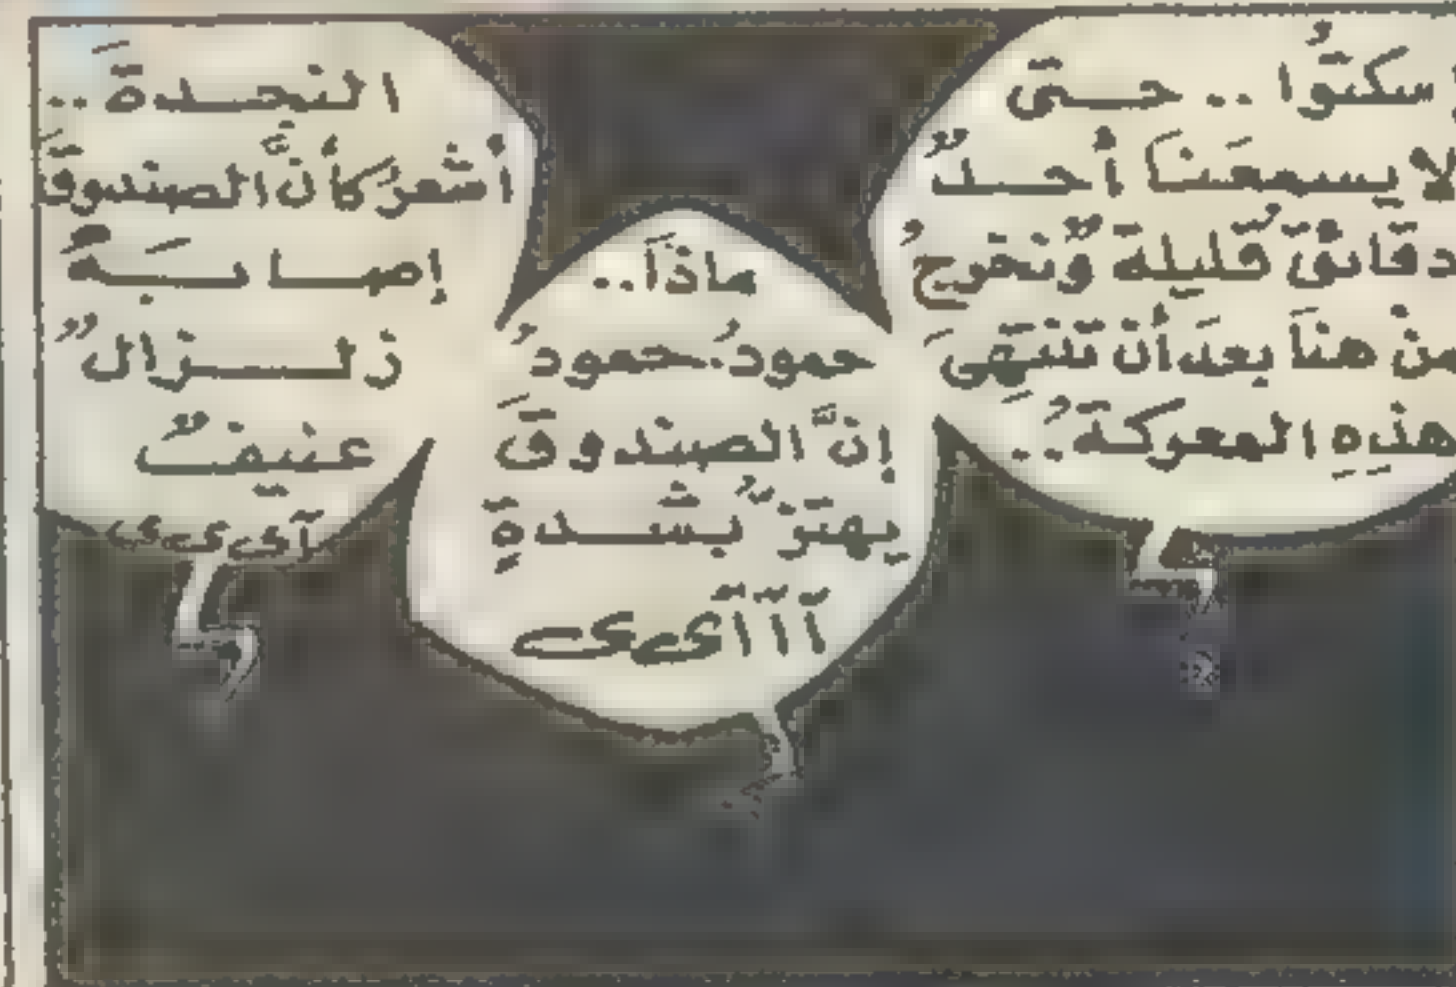 سكتُوا .. حتى
لا يسمعَنَا أحدٌ
دقائقَ قليلةً ونخرجُ
منْ هنَا بعدَ أن تنتهىَ
هذِهِ المعركةُ..
ماذَا..
حمودُ.حمودُ
إنَّ الصندوقَ
يهتزُ بشدةٍ
آآآىىى
النجدةَ..
أشعرُ كأنَّ الصندوقَ
إصابَهُ
زلزالٌ
عنيفٌ
آىىىى